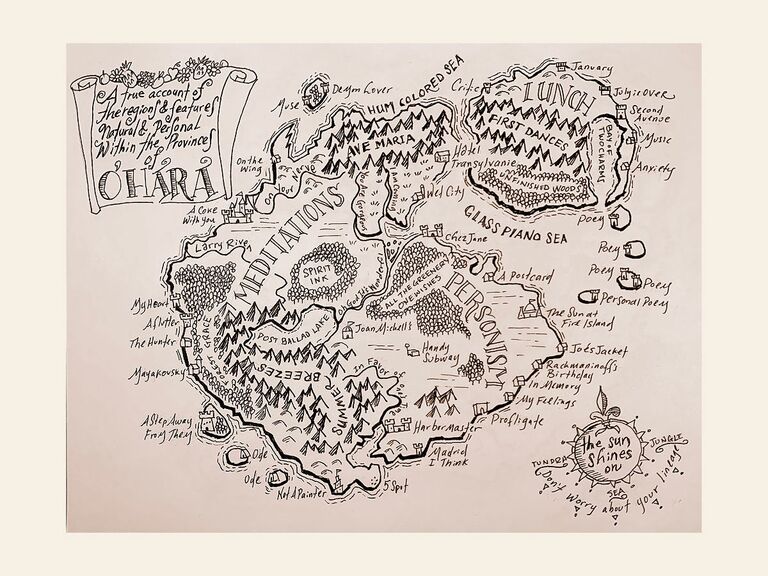 A true account of
the regions & features
Natural & Personal
Within the Provinces
of
O'HARA
Muse
HUM COLORED SEA
Critic
LUNCH
FIRST DANCES
UNFINISHED WOODS
BAY OF
TWO CHARMS
January
July is OVER
Second
Avenue
Music
Anxiety
AVE MARIA
Hotel
Transylvania
On the
Wing
A Coke
With You
Larry River
MEDITATIONS
SPIRIT
INK
Chez Jane
GLASS PIANO SEA
Poem
Poem
Poem
Poem
Personal Poem
PERSONISM
ALL THE GREENERY
ONE WISHES
A Postcard
The Sun at
Fire Island
Joe's Jacket
Rachmaninoff's
Birthday
In Memory
My Feelings
Profligate
Harbor Master
Madrid
I Think
5 Spot
Not A Painter
Ode
Ode
A Step Away
From Them
Mayakovsky
The Hunter
A flutter
My Heart
GRACE
POST BALLAD LAKE
SUMMER BREEZES
Joan Mitchell's
Handy
Subway
In Favor of
the sun
shines
on
JUNGLE
TUNDRA
SEA
Don't worry about your lineage